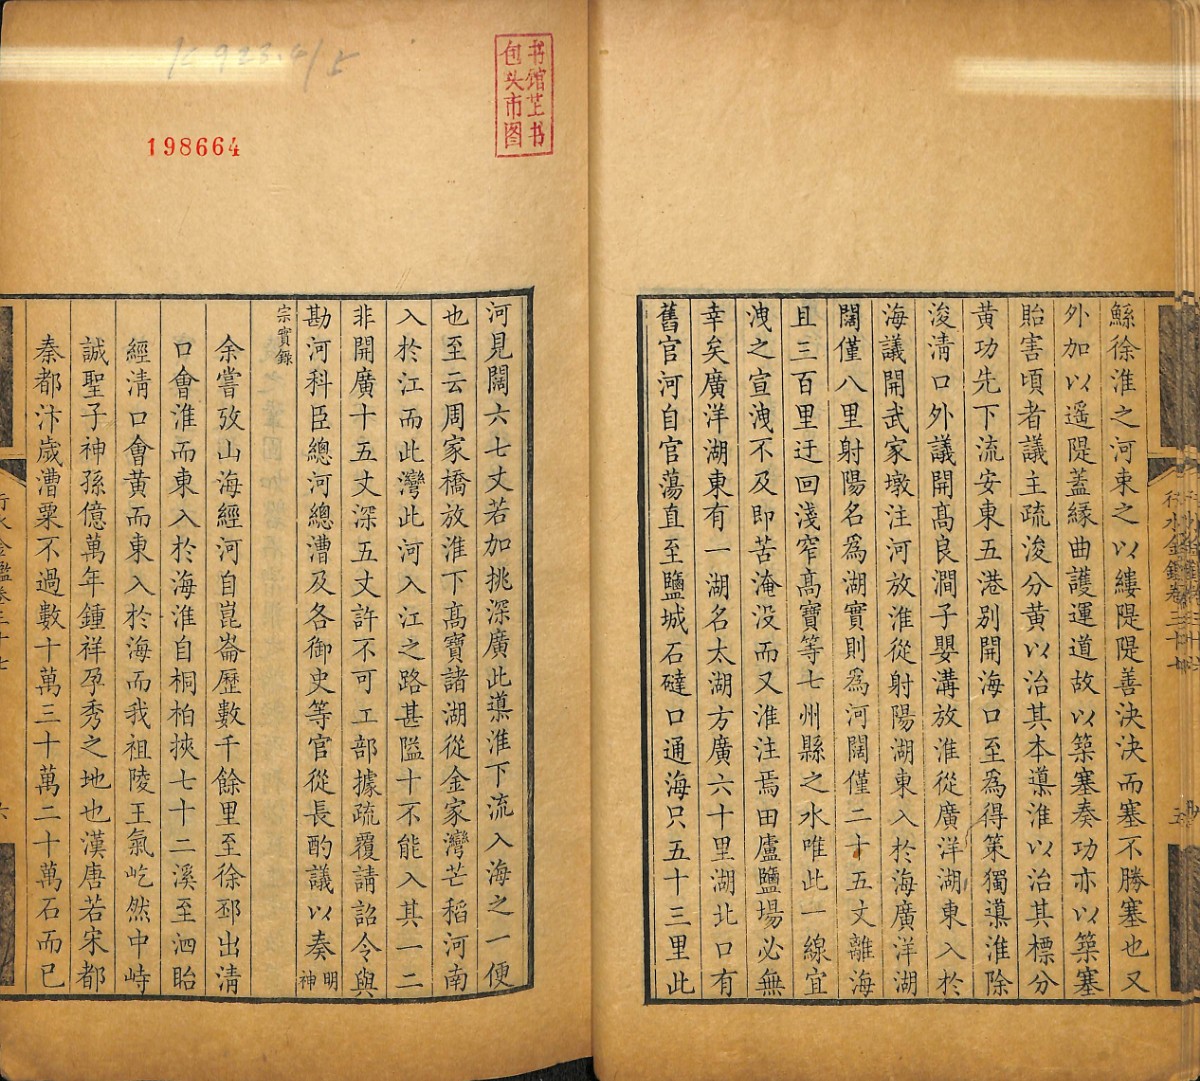 鯀徐淮之河束之以縷隄隄善決決而塞不勝塞也又
外加以遥隄蓋縁曲護運道故以築塞奏功亦以築塞
貽害頃者議主疏浚分黃以治其本導淮以治其標分
黃功先下流安東五港別開海口至為得策獨導淮除
浚淸口外議開髙良澗子嬰溝放淮從廣洋湖東入於
海議開武家墩注河放淮從射陽湖東入於海廣洋湖
闊僅八里射陽名為湖實則為河闊僅二十五丈離海
且三百里迂回淺窄髙寶等七州縣之水唯此一線宜
洩之宣洩不及即苦淹没而又淮注焉田廬鹽場必無
幸矣廣洋湖東有一湖名太湖方廣六十里湖北口有
舊官河自官蕩直至鹽城石䃮口通海只五十三里此
行水金鑑卷三十七
五
河見闊六七丈若加挑深廣此導淮下流入海之一便
也至云周家橋放淮下髙寶諸湖從金家灣芒稻河南
入於江而此灣此河入江之路甚隘十不能入其一二
非開廣十五丈深五丈許不可工部據疏覆請詔令與
勘河科臣總河總漕及各御史等官從長酌議以奏明神
宗實錄
余嘗攷山海經河自崑崙歷數千餘里至徐邳出淸
口會淮而東入於海淮自桐柏挾七十二溪至泗貽
經淸口會黃而東入於海而我祖陵王氣屹然中峙
誠聖子神孫億萬年鍾祥孕秀之地也漢唐若宋都
秦都汴歲漕粟不過數十萬三十萬二十萬石而已
行水金鑑卷三十七
六
书馆芷书
包头市图
198664
K923.4/5